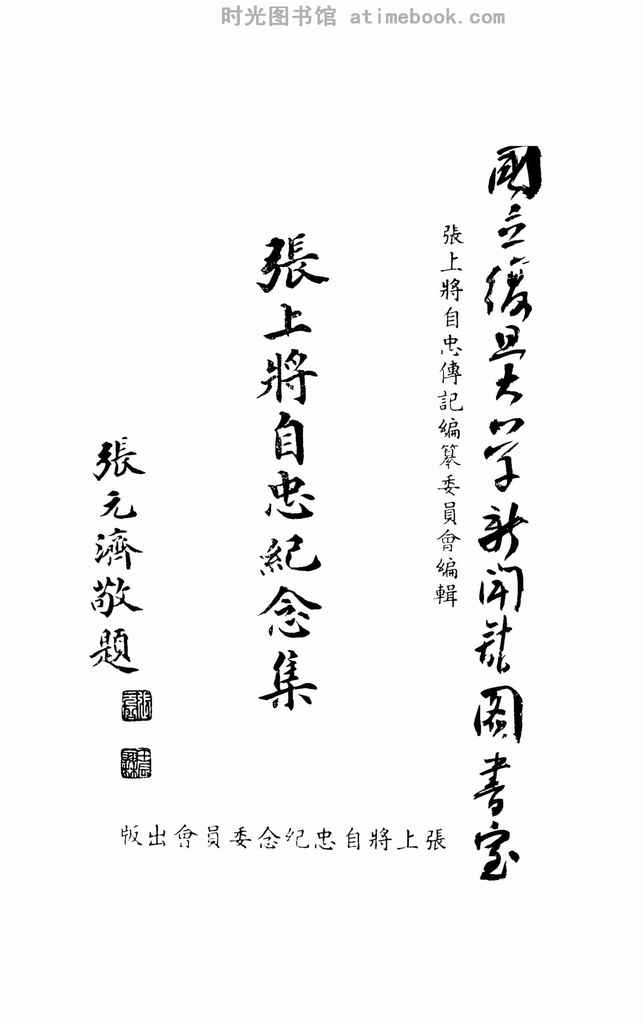 时光图书馆 atimebook.com
國立復旦大学新闻馆图書室
張上將自忠傳記編纂委員會編輯
張上將自忠紀念集
張元濟敬題
張上將自忠纪念委員會出版